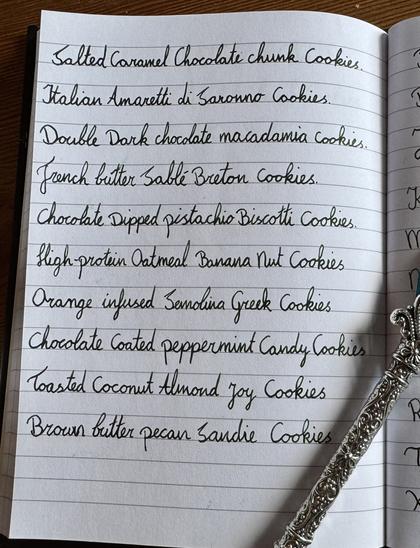 Salted Caramel Chocolate chunk Cookies.
Italian Amaretti di Saronno Cookies.
Double Dark chocolate macadamia cookies.
French butter Sablé Breton Cookies.
Chocolate Dipped pistachio Biscotti Cookies.
High-protein Oatmeal Banana Nut Cookies
Orange infused Semolina Greek Cookies
Chocolate Coated peppermint Candy Cookies
Toasted Coconut Almond Joy Cookies
Brown butter pecan Sandie Cookies